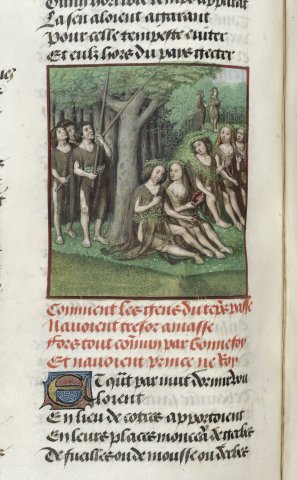 La sen aloient aparant
Pour celle tempeste euiter
Et eulz hors du pays getter
Comment les gens du teps passe
Nauoient tresor amasse
Fors tout comun par bonne foy
Et nauoient prince ne Roy
Et quāt par nuit dormir vou
loient
En lieu de coites apportoient
En leurs places monceaū de gerbes
De fueilles ou de mousse ou derbes